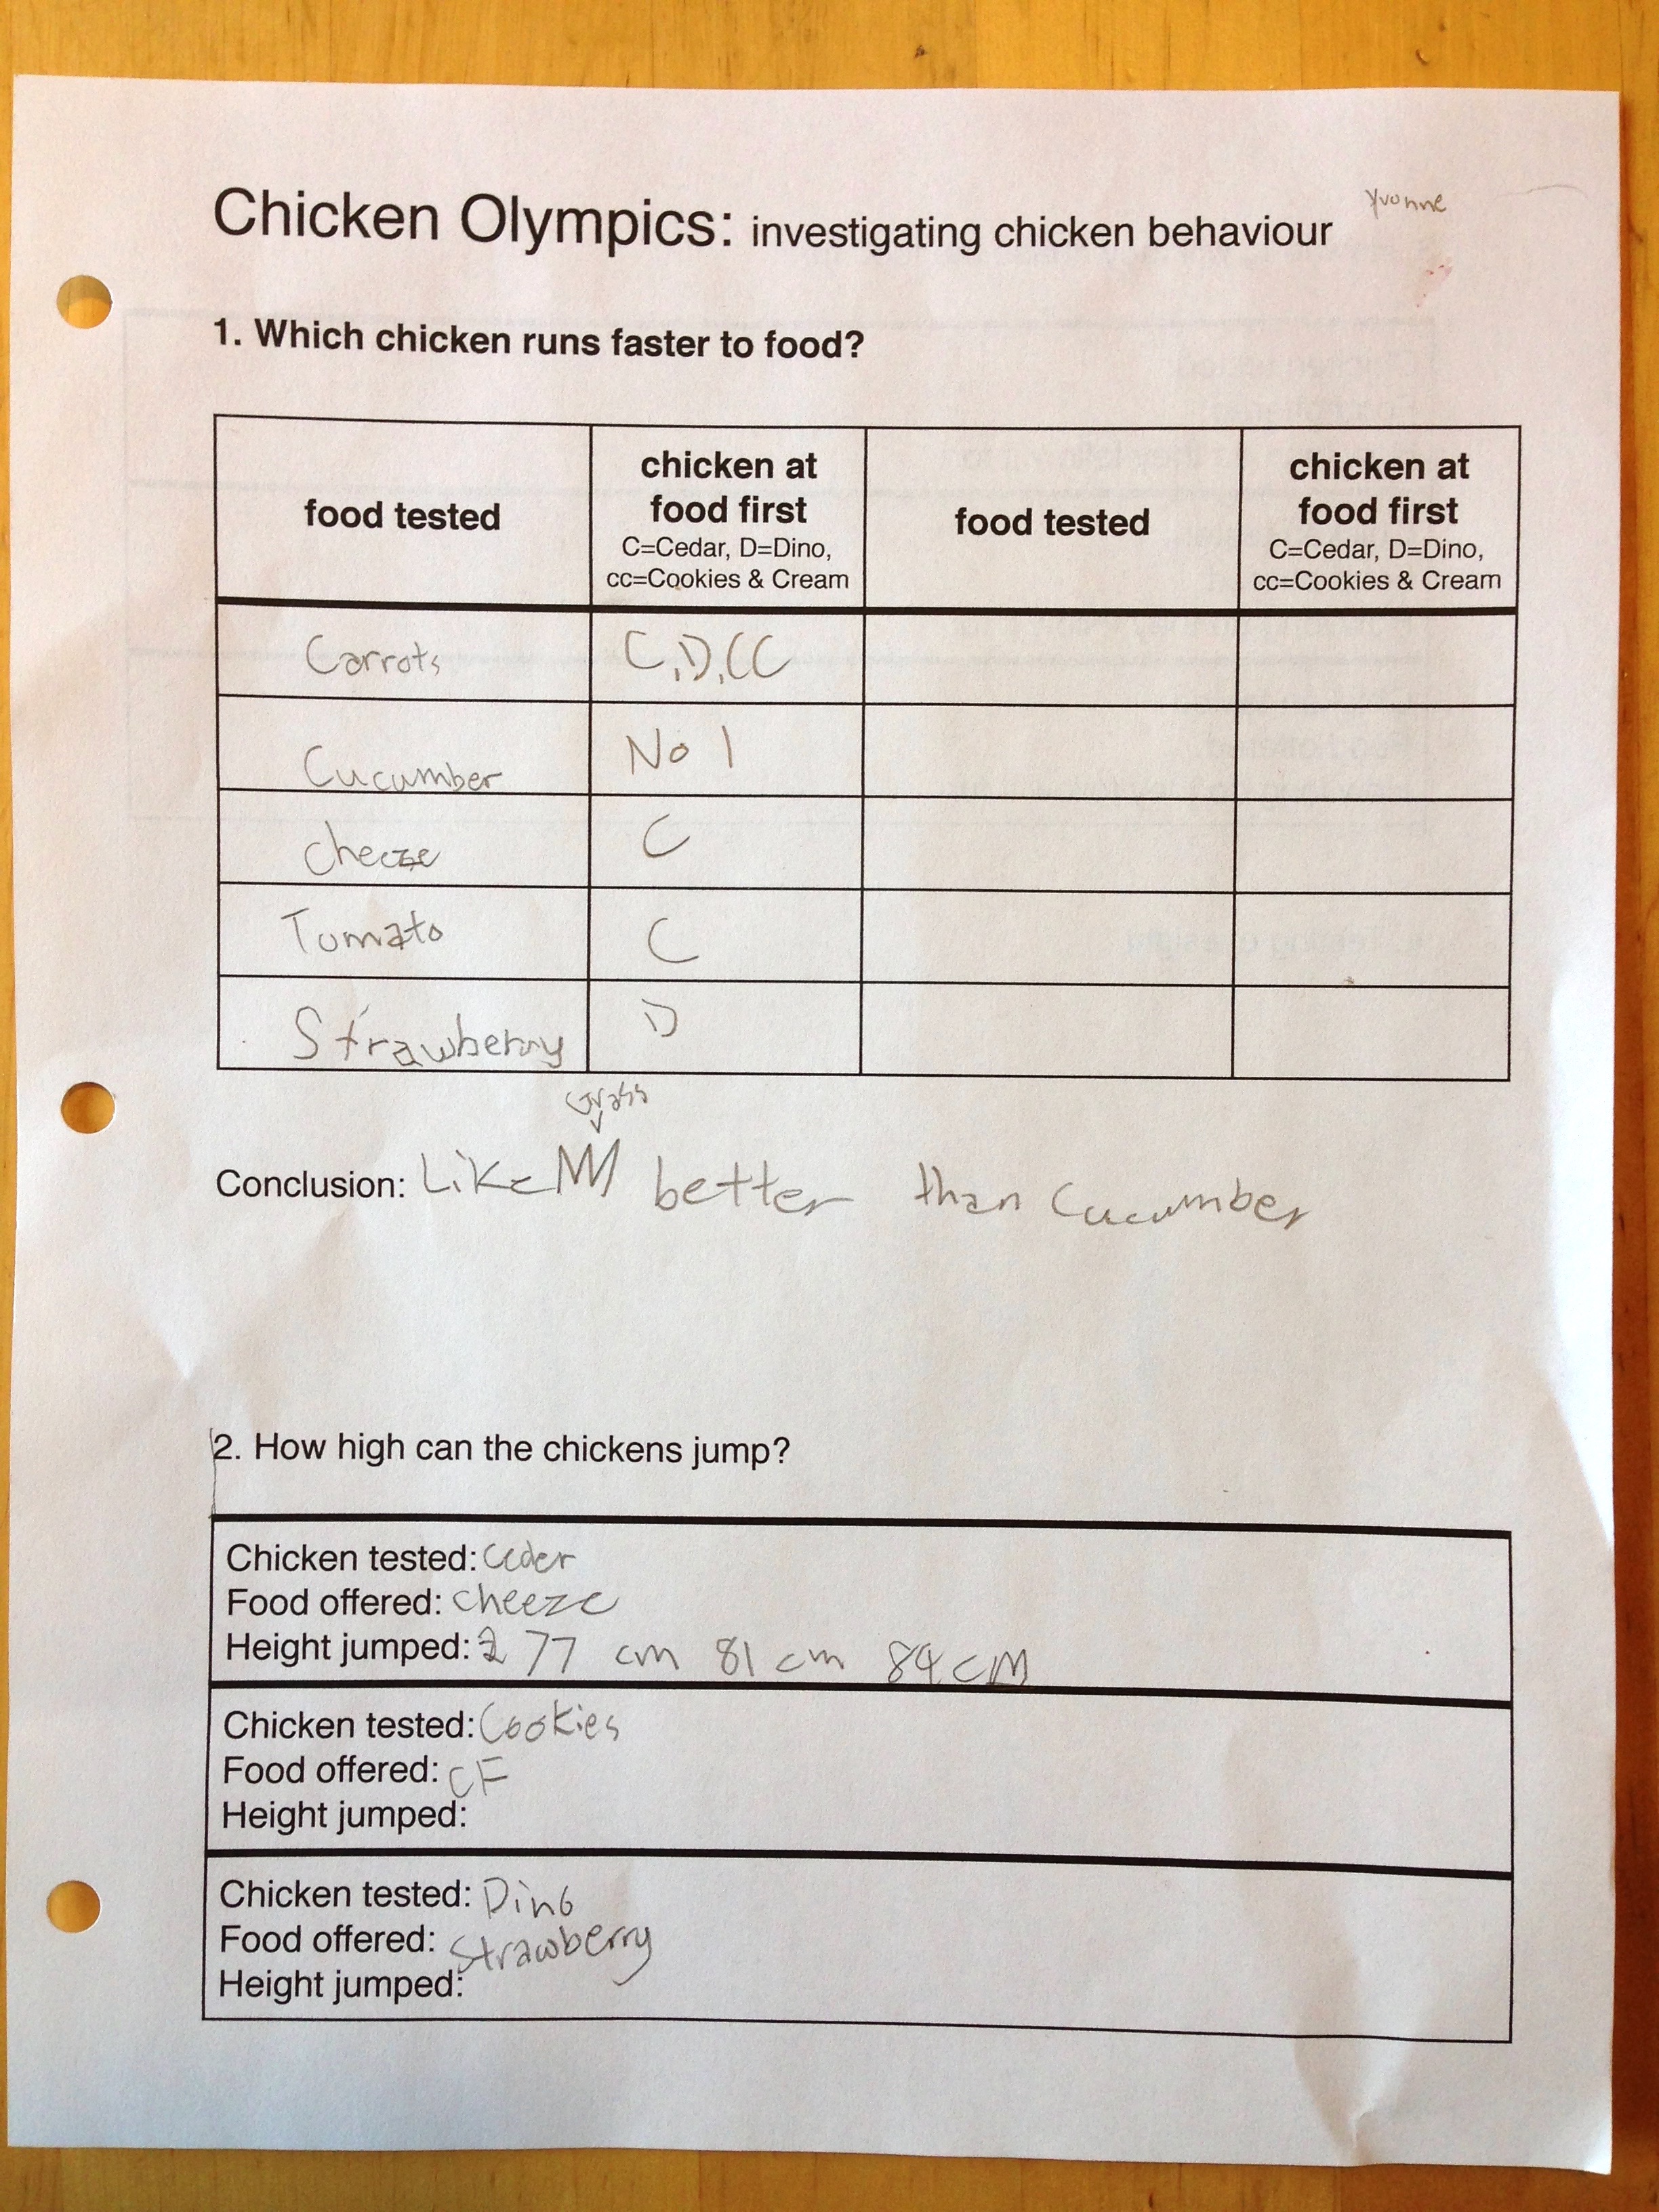 Yvonne
Chicken Olympics: investigating chicken behaviour
1. Which chicken runs faster to food?
food tested
chicken at
food first
C=Cedar, D=Dino,
cc=Cookies & Cream
food tested
chicken at
food first
C=Cedar, D=Dino,
cc=Cookies & Cream
Carrots C,D,CC
Cucumber No 1
cheeze C
Tomato C
Strawberry D
Grass
Conclusion: Like better than Cucumber
2. How high can the chickens jump?
Chicken tested: Ceder
Food offered: cheeze
Height jumped: 77 cm 81 cm 84 cM
Chicken tested: Cookies
Food offered: CF
Height jumped:
Chicken tested: Dino
Food offered: Strawberry
Height jumped: